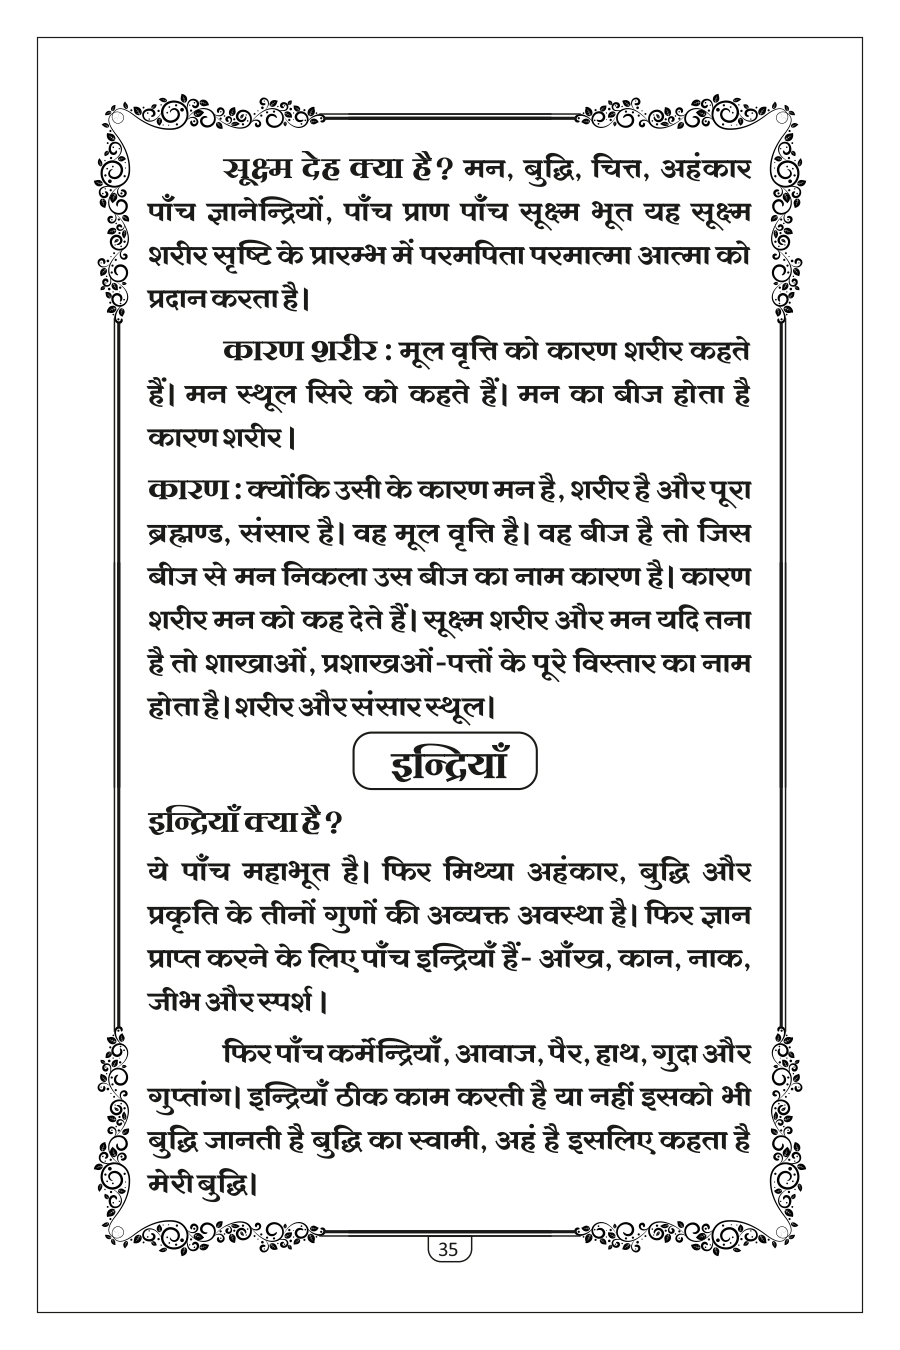 सूक्ष्म देह क्या है? मन, बुद्धि, चित्त, अहंकार
पाँच ज्ञानेन्द्रियों, पाँच प्राण पाँच सूक्ष्म भूत यह सूक्ष्म
शरीर सृष्टि के प्रारम्भ में परमपिता परमात्मा आत्मा को
प्रदान करता है।
कारण शरीर : मूल वृत्ति को कारण शरीर कहते
हैं। मन स्थूल सिरे को कहते हैं। मन का बीज होता है
कारण शरीर।
कारण : क्योंकि उसी के कारण मन है, शरीर है और पूरा
ब्रह्मण्ड, संसार है। वह मूल वृत्ति है। वह बीज है तो जिस
बीज से मन निकला उस बीज का नाम कारण है। कारण
शरीर मन को कह देते हैं। सूक्ष्म शरीर और मन यदि तना
है तो शाखाओं, प्रशाखओं-पत्तों के पूरे विस्तार का नाम
होता है। शरीर और संसार स्थूल।
इन्द्रियाँ
इन्द्रियाँ क्या है?
ये पाँच महाभूत है। फिर मिथ्या अहंकार, बुद्धि और
प्रकृति के तीनों गुणों की अव्यक्त अवस्था है। फिर ज्ञान
प्राप्त करने के लिए पाँच इन्द्रियाँ हैं- आँख, कान, नाक,
जीभ और स्पर्श।
फिर पाँच कर्मेन्द्रियाँ, आवाज, पैर, हाथ, गुदा और
गुप्तांग। इन्द्रियाँ ठीक काम करती है या नहीं इसको भी
बुद्धि जानती है बुद्धि का स्वामी, अहं है इसलिए कहता है
मेरी बुद्धि।
35